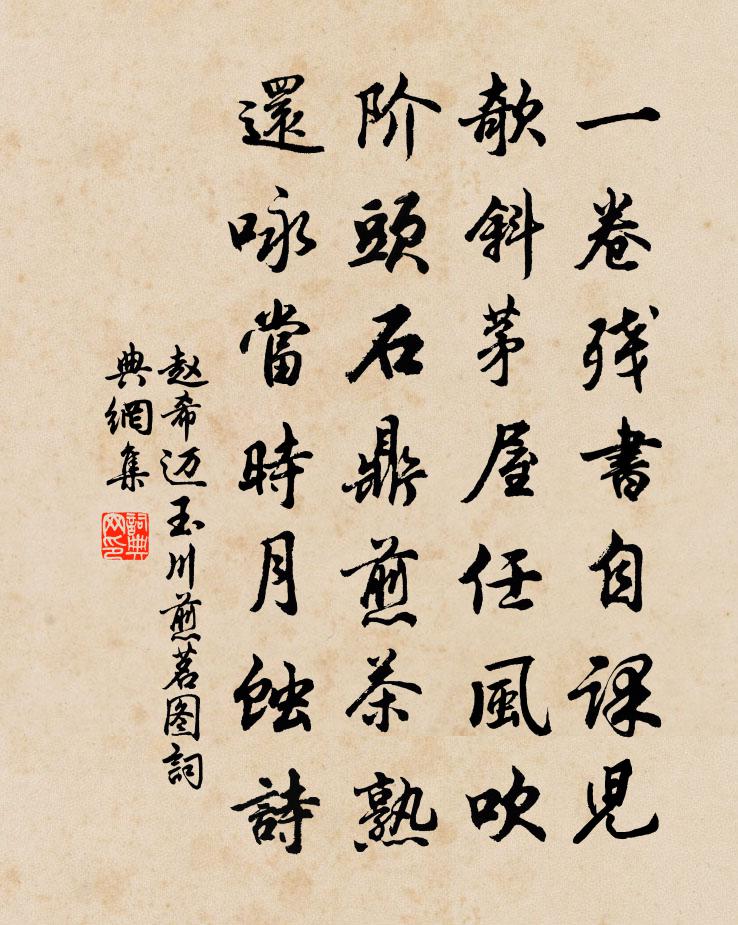 一卷残書自課児
欹斜茅屋任風吹
阶頭石鼎煎茶熟
還咏當時月蝕詩
赵希迈玉川煎茗图詞
典網集
詞典网印